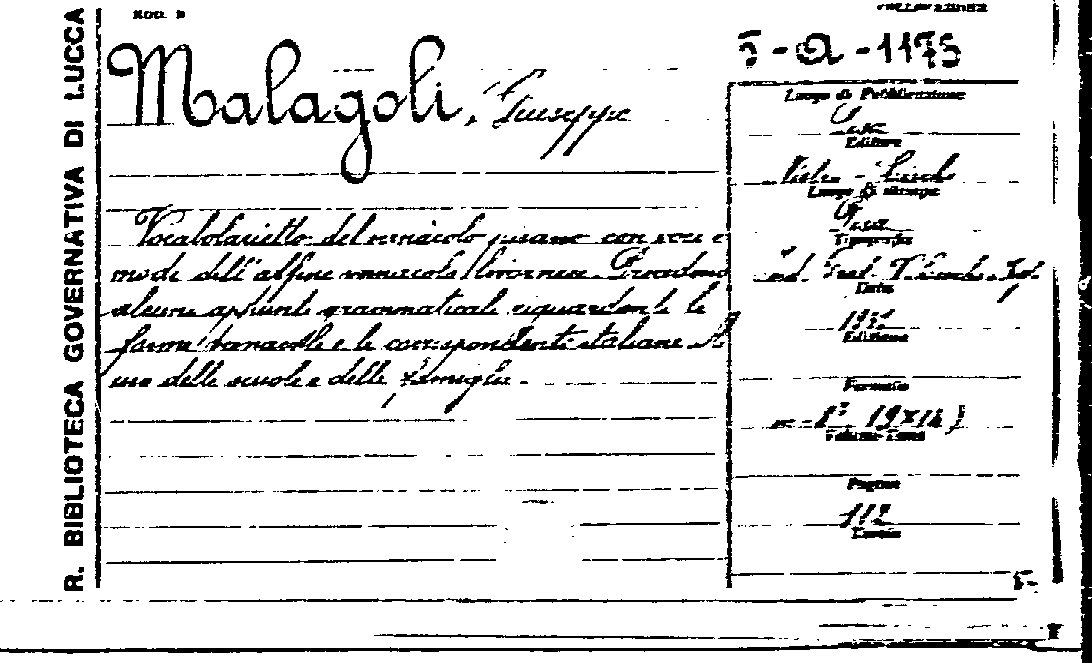 R. BIBLIOTECA GOVERNATIVA DI LUCCA
MOD.
COLLOCAZIONE
5-a-1175
Malagoli, Giuseppe
Vocabolarietto del vernacolo pisano con voci e
modi dell'affine vernacolo livornese. Precedono
alcuni appunti grammaticali riguardanti le
forme vernacole e le corrispondenti italiane. Ad
uso delle scuole e delle famiglie.
Luogo di Pubblicazione
Pisa
Editore
Luogo di stampa
Pisa
Tipografia
Data
Edizione
Formato
19x14
Volume-Tomi
Pagine
112